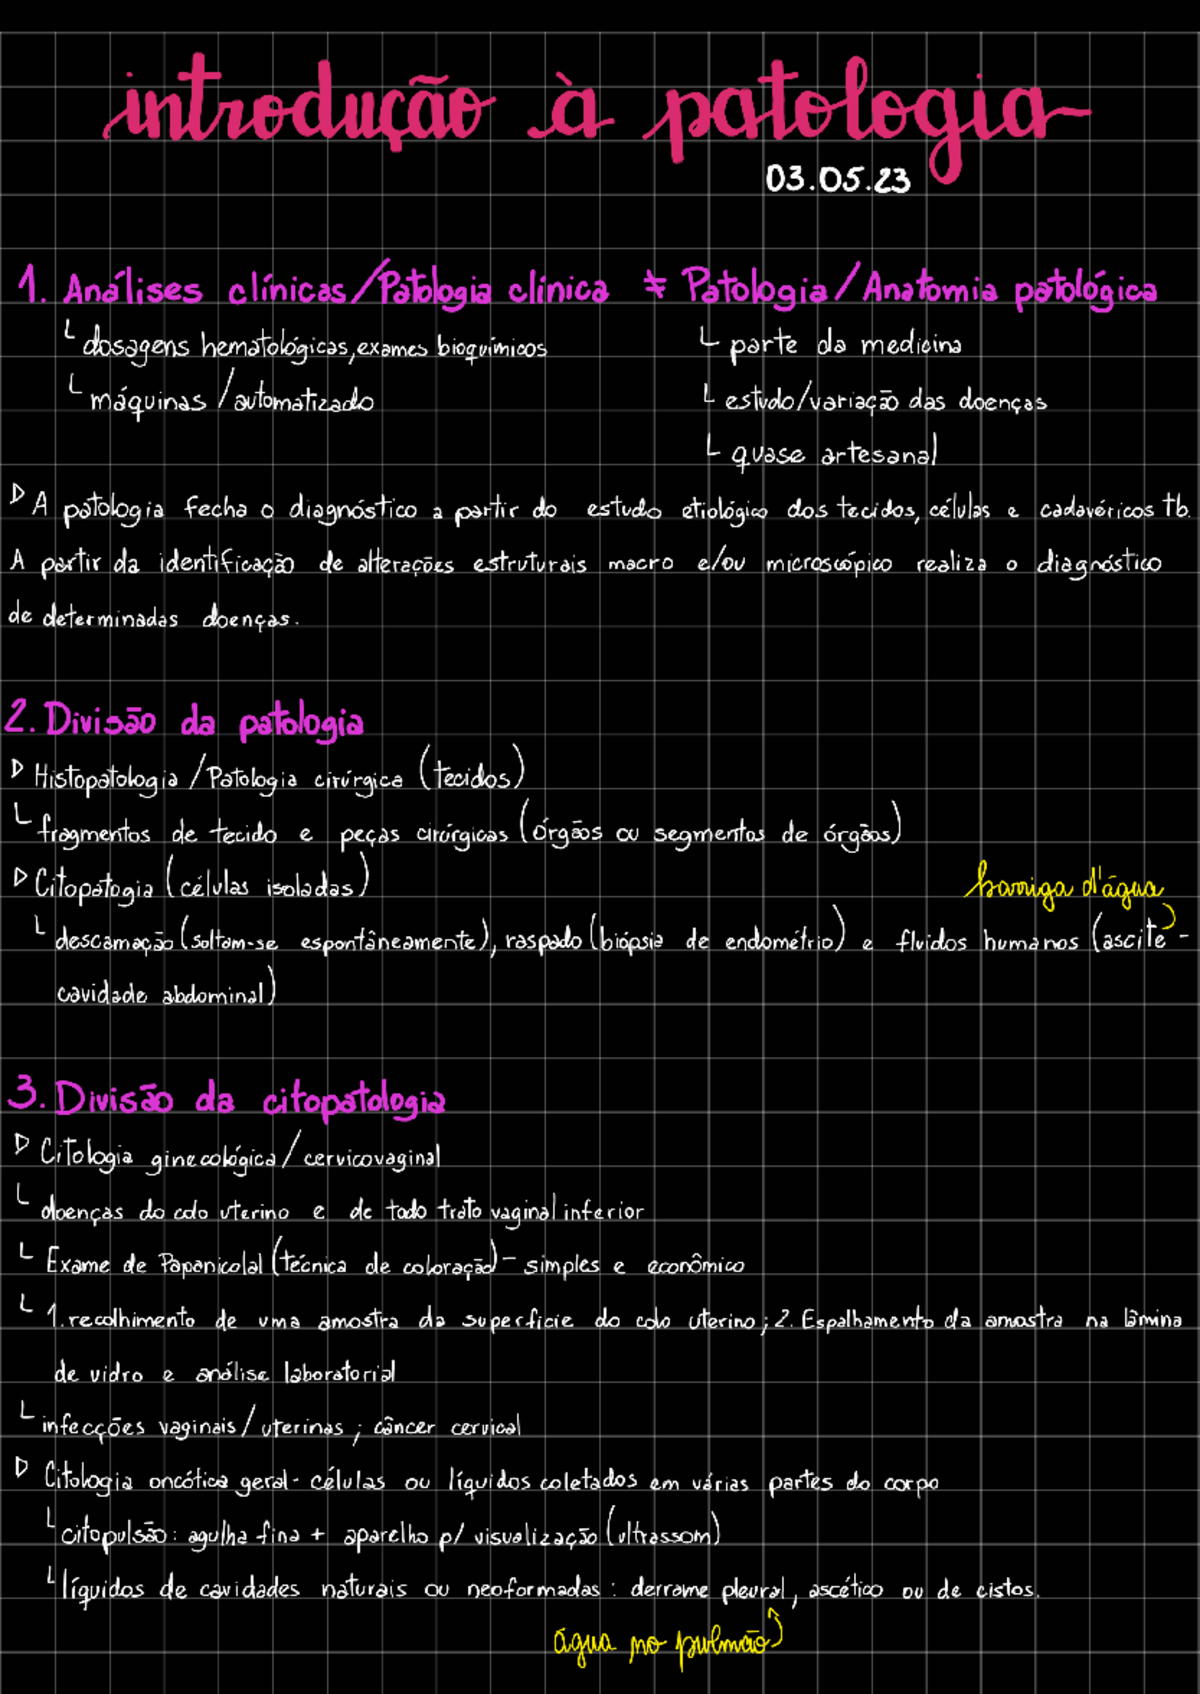 introdução à patologia
03.05.23
1. Análises clínicas/Patologia clínica ≠ Patologia/Anatomia patológica
└ dosagens hematológicas, exames bioquímicos
└ máquinas / automatizado
└ parte da medicina
└ estudo/variação das doenças
└ quase artesanal
▷ A patologia fecha o diagnóstico a partir do estudo etiológico dos tecidos, células e cadavéricos tb.
A partir da identificação de alterações estruturais macro e/ou microscópico realiza o diagnóstico
de determinadas doenças.
2. Divisão da patologia
▷ Histopatologia / Patologia cirúrgica (tecidos)
└ fragmentos de tecido e peças cirúrgicas (órgãos ou segmentos de órgãos)
▷ Citopatogia (células isoladas)
barriga d'água
└ descamação (soltam-se espontâneamente), raspado (biópsia de endométrio) e fluidos humanos (ascite -
cavidade abdominal)
3. Divisão da citopatologia
▷ Citologia ginecológica / cervicovaginal
└ doenças do colo uterino e de todo trato vaginal inferior
└ Exame de Papanicolal (técnica de coloração) - simples e econômico
└ 1. recolhimento de uma amostra da superfície do colo uterino; 2. Espalhamento da amostra na lâmina
de vidro e análise laboratorial
└ infecções vaginais/uterinas ; câncer cervical
▷ Citologia oncótica geral - células ou líquidos coletados em várias partes do corpo
└ citopulsão: agulha fina + aparelho p/ visualização (ultrassom)
└ líquidos de cavidades naturais ou neoformadas : derrame pleural, ascético ou de cistos.
água no pulmão